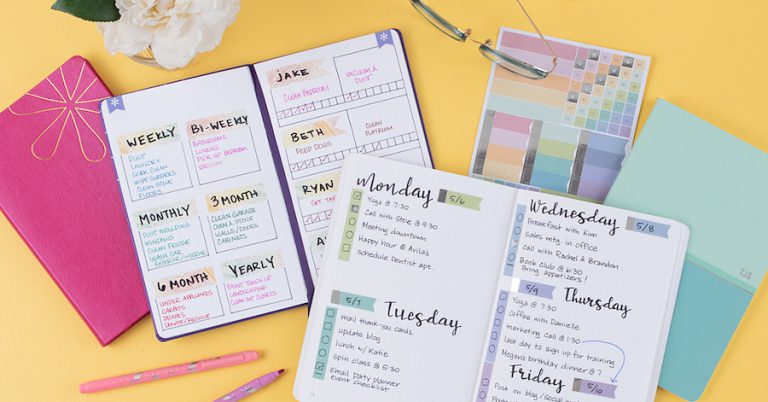 WEEKLY
DUST
LAUNDRY
QUICK CLEAN
WIPE SURFACES
CLEAN STOVE
FLOORS
BI-WEEKLY
BATHROOMS
LINENS
PICK UP BEDROOM
VACUUM
MONTHLY
DUST MOLDING
WINDOWS
CLEAN FRIDGE
WASH CAR
EXTERIOR/INTERIOR
3 MONTH
CLEAN GARAGE
OVEN & STOVE
WALLS/DOORS
CABINETS
6 MONTH
UNDER APPLIANCES
CARPETS
DRAPES
DONATE/RECYCLE
YEARLY
PAINT TOUCH UP
LANDSCAPING
CLEAN OUT CLOSETS
JAKE
CLEAN BEDROOM
VACUUM &
DUST
BETH
FEED DOGS
CLEAN
PLAYROOM
RYAN
Monday 5/6
Yoga @ 7:30
Call with Steve @ 9:30
Meeting downtown
Happy hour @ Avila's
Schedule Dentist apt.
5/7
Tuesday
mail thank you cards
update blog
lunch w/ Katie
spin class @ 5:30
Email Party planner
event checklist
Wednesday 5/8
Breakfast with Kim
Sales mtg. in office
Call with Rachel & Brandon
Book club @ 6:30
Bring appetizers!
5/9
Thursday
Yoga @ 7:30
Coffee with Danielle
marketing call @ 1:30
last day to sign up for training
Megan's birthday dinner @ 7
Friday 5/10
Post on blog/Social
TJS